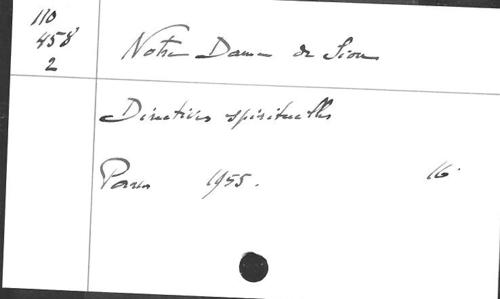 110
458
2
Notre Dame de Sion
Directives spirituelles
Paris 1955. 16°